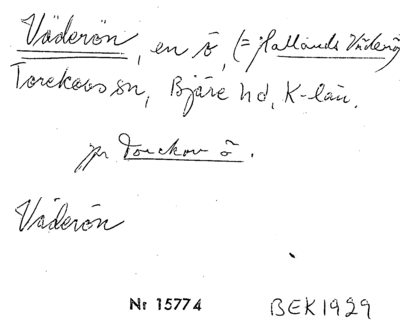 Väderön, en ö, (= Hallands Väderö
Torekovs sn, Bjäre hd, K-län.
jfr Torekov ö.
Väderön
Nr 15774 BEK1929